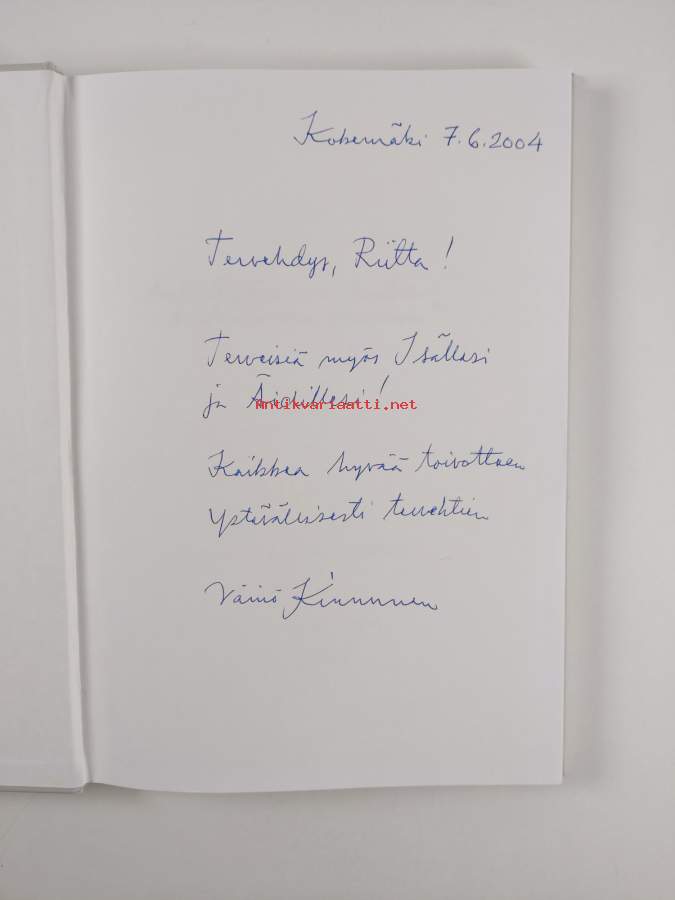 Kokemäki 7.6.2004
Tervehdys, Riitta!
Terveisiä myös Isällesi
ja Äidillesi!
Antikvariaatti.net
Kaikkea hyvää toivottaen
Ystävällisesti tervehtien
Väinö Kinnunen